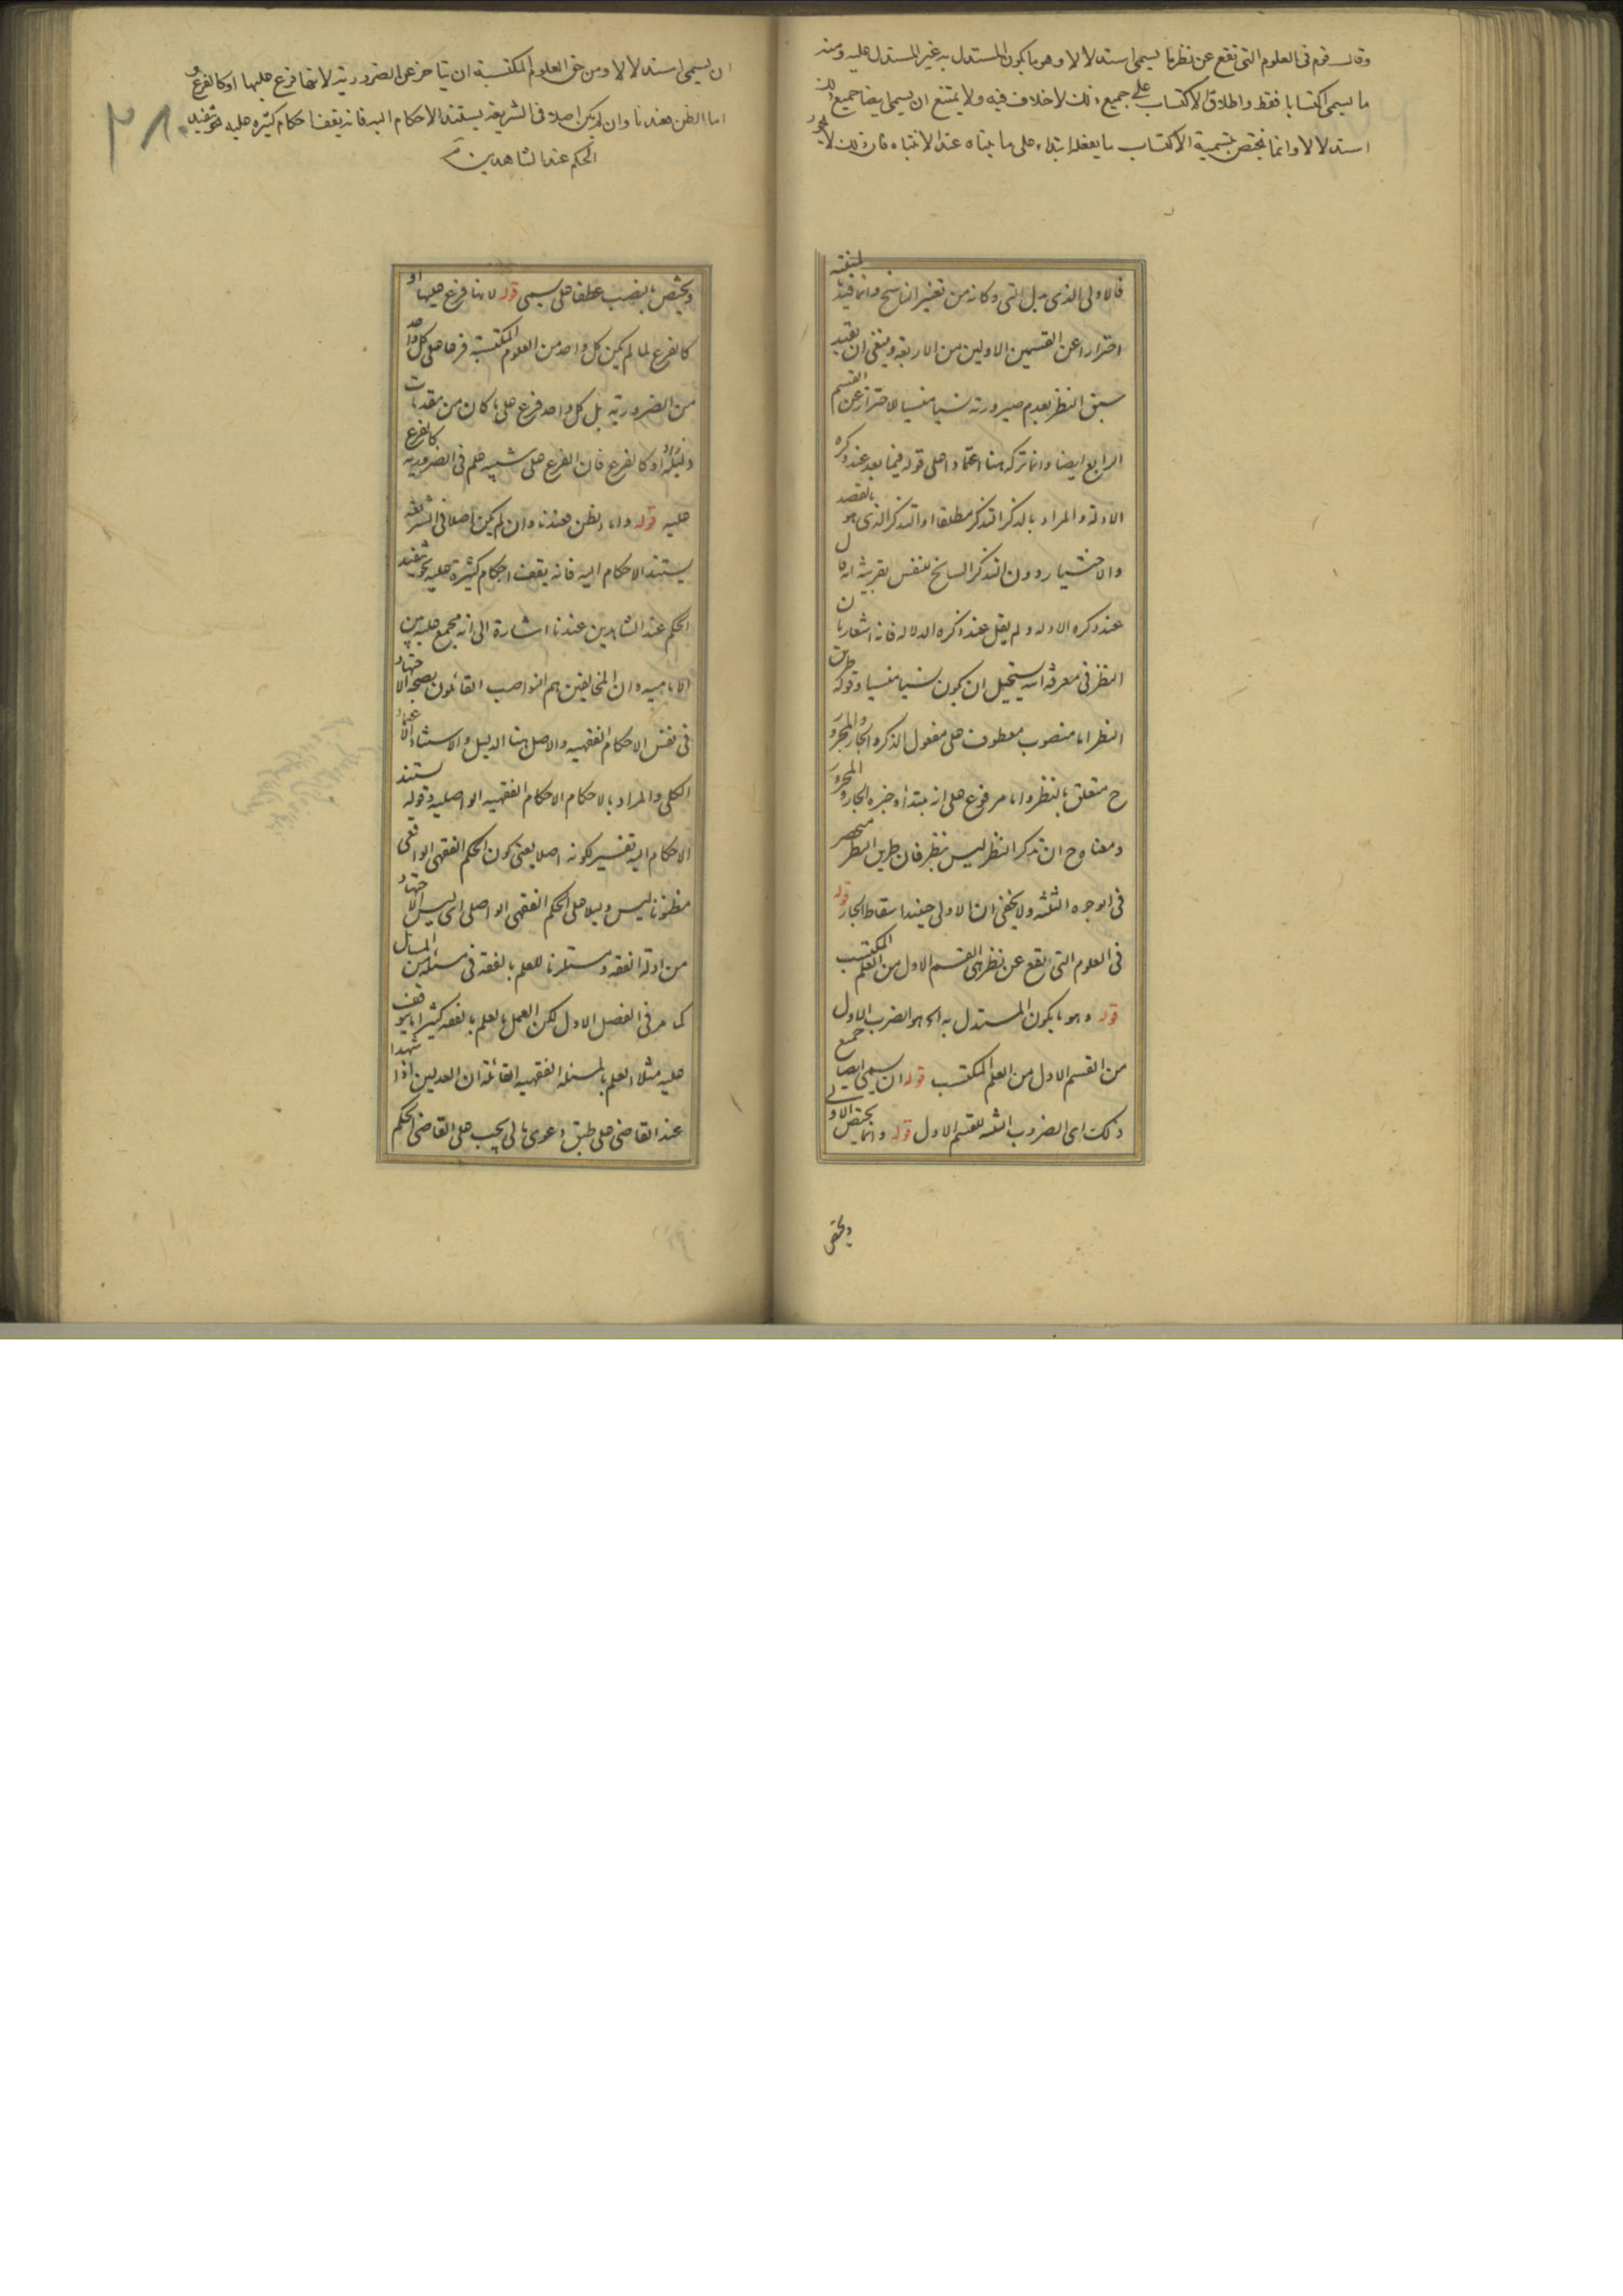 وقال قوم فى العلوم التى تقع عن نظر ما يسمى استدلالا وهو ما يكون المستدل به غير المستدل عليه ومنه
ما يسمى اكتسابا فقط واطلاق الاكتساب على جميع ذلك لا خلاف فيه ولا يمتنع ان يسمى ايضا جميع ذلك
استدلالا وانما يختص بتسمية الاكتساب ما يفعله ابتداء على ما بيناه عند الانتباه فان ذلك لا يجوز
فالاولى الذى بدل التى وكانه من تغيير الناسخ وانما قيد المنفية
احترازا عن القسمين الاولين من الاربعة وينبغى ان يقيد
سبق النظر بعدم صيرورته نسيا منسيا للاحتراز عن القسم
الرابع ايضا وانما تركه هنا اعتمادا على قوله فيما بعد عند ذكره
الادلة والمراد بالذكر التذكر مطلقا او التذكر الذى هو بالقصد
والاختيار دون التذكر السانح للنفس بقرينة انه قال
عند ذكره الادلة ولم يقل عند ذكره الدلالة فانه اشعار بان
النظر فى معرفة الله يستحيل ان يكون نسيا منسيا وقوله طريق
النظر اما منصوب معطوف على مفعول الذكر والجار والمجرور
ح متعلق بالنظر واما مرفوع على انه مبتدأ وخبره الجار والمجرور
ومعناه ح ان تذكر النظر ليس بنظر فان طريق النظر منحصر
فى الوجوه الثلثة ولا يخفى ان الاولى حينئذ اسقاط الجار قوله
فى العلوم التى تقع عن نظر اى القسم الاول من العلم المكتسب
قوله وهو ما يكون المستدل به الخ هو الضرب الاول
من القسم الاول من العلم المكتسب قوله ان يسمى ايضا جميع
ذلك اى الضروب الثلثة للقسم الاول قوله وانما يختص الاولى
ويختص
ان يسمى استدلالا ومن حق العلوم المكتسبة ان يتاخر عن الضرورية لانها فرع عليها او كالفرع و
اما الظن فعندنا وان لم يكن اصلا فى الشريعة يستند الاحكام اليه فانه يقف احكام كثيرة عليه نحو تنفيذ
الحكم عند الشاهدين
ويختص بالنصب عطفا على يسمى قوله لانها فرع عليها او
كالفرع لما لم يكن كل واحد من العلوم المكتسبة فرعا على كل واحد
من الضرورية بل كل واحد فرع على ما كان من مقدمات
دليله او كالفرع فان الفرع على شيئ علم فى الضرورية كالفرع
عليه قوله واما الظن فعندنا وان لم يكن اصلا فى الشريعة
يستند الاحكام اليه فانه يقف احكام كثيرة عليه نحو تنفيذ
الحكم عند الشاهدين عندنا اشارة الى انه مجمع عليه بين
الامامية وان المخالفين هم النواصب القائلون بصحة الاجتهاد
فى نفس الاحكام الفقهية والاصل هنا الدليل والاستناد الاعتماد
الكلى والمراد بالاحكام الاحكام الفقهية الواصلية وقوله يستند
الاحكام اليه تفسير لكونه اصلا يعنى كون الحكم الفقهى الواقعى
مظنونا ليس دليلا على الحكم الفقهى الواصلى اى ليس الاجتهاد
من ادلة الفقه ومستلزما للعلم بالفقه فى مسئلة من المسائل
كما مر فى الفصل الاول لكن العمل بالعلم بالفقه كثيرا ما يتوقف
عليه مثلا العلم بالمسئلة الفقهية القائلة ان العدلين اذا شهدا
عند القاضى على طبق دعوى مالى يجب على القاضى الحكم